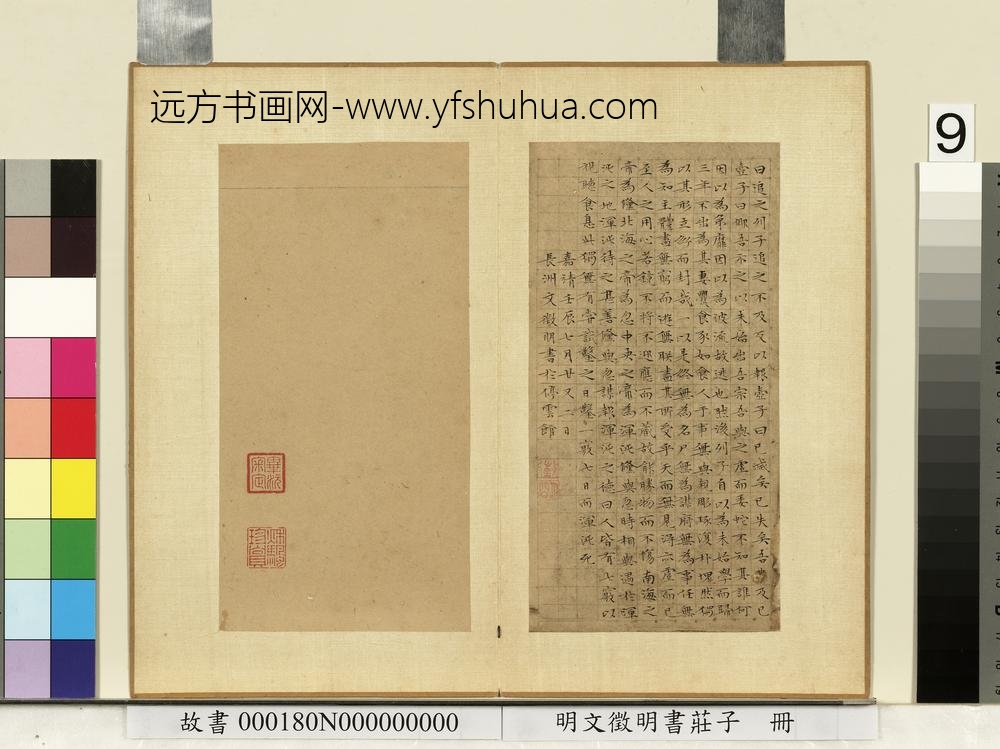 远方书画网-www.yfshuhua.com
9
曰追之列子追之不及反以報壺子曰已滅矣已失矣吾弗及已
壺子曰鄉吾示之以未始出吾宗吾與之虛而委蛇不知其誰何
因以為弟靡因以為波流故逃也然後列子自以為未始學而歸
三年不出為其妻爨食豕如食人于事無與親彫琢復朴塊然獨
以其形立紛而封哉一以是終無為名尸無為謀府無為事任無
為知主體盡無窮而遊無朕盡其所受乎天而無見得亦虛而已
至人之用心若鏡不將不迎應而不藏故能勝物而不傷南海之
帝為儵北海之帝為忽中央之帝為渾沌儵與忽時相與遇於渾
沌之地渾沌待之甚善儵與忽謀報渾沌之德曰人皆有七竅以
視聽食息此獨無有嘗試鑿之日鑿一竅七日而渾沌死
嘉靖壬辰七月廿又二日
長洲文徵明書於停雲館
畢瀧審定
珍賞
故書 000180N000000000
明文徵明書莊子 冊